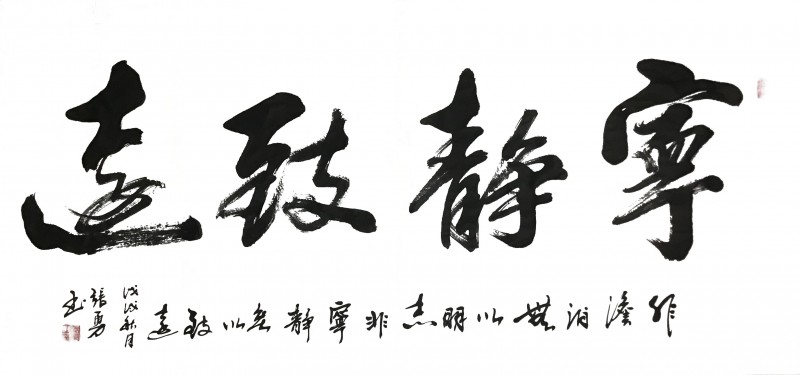 寧靜致遠
非澹泊無以明志非寧靜無以致遠
戊戌秋月
張勇
书